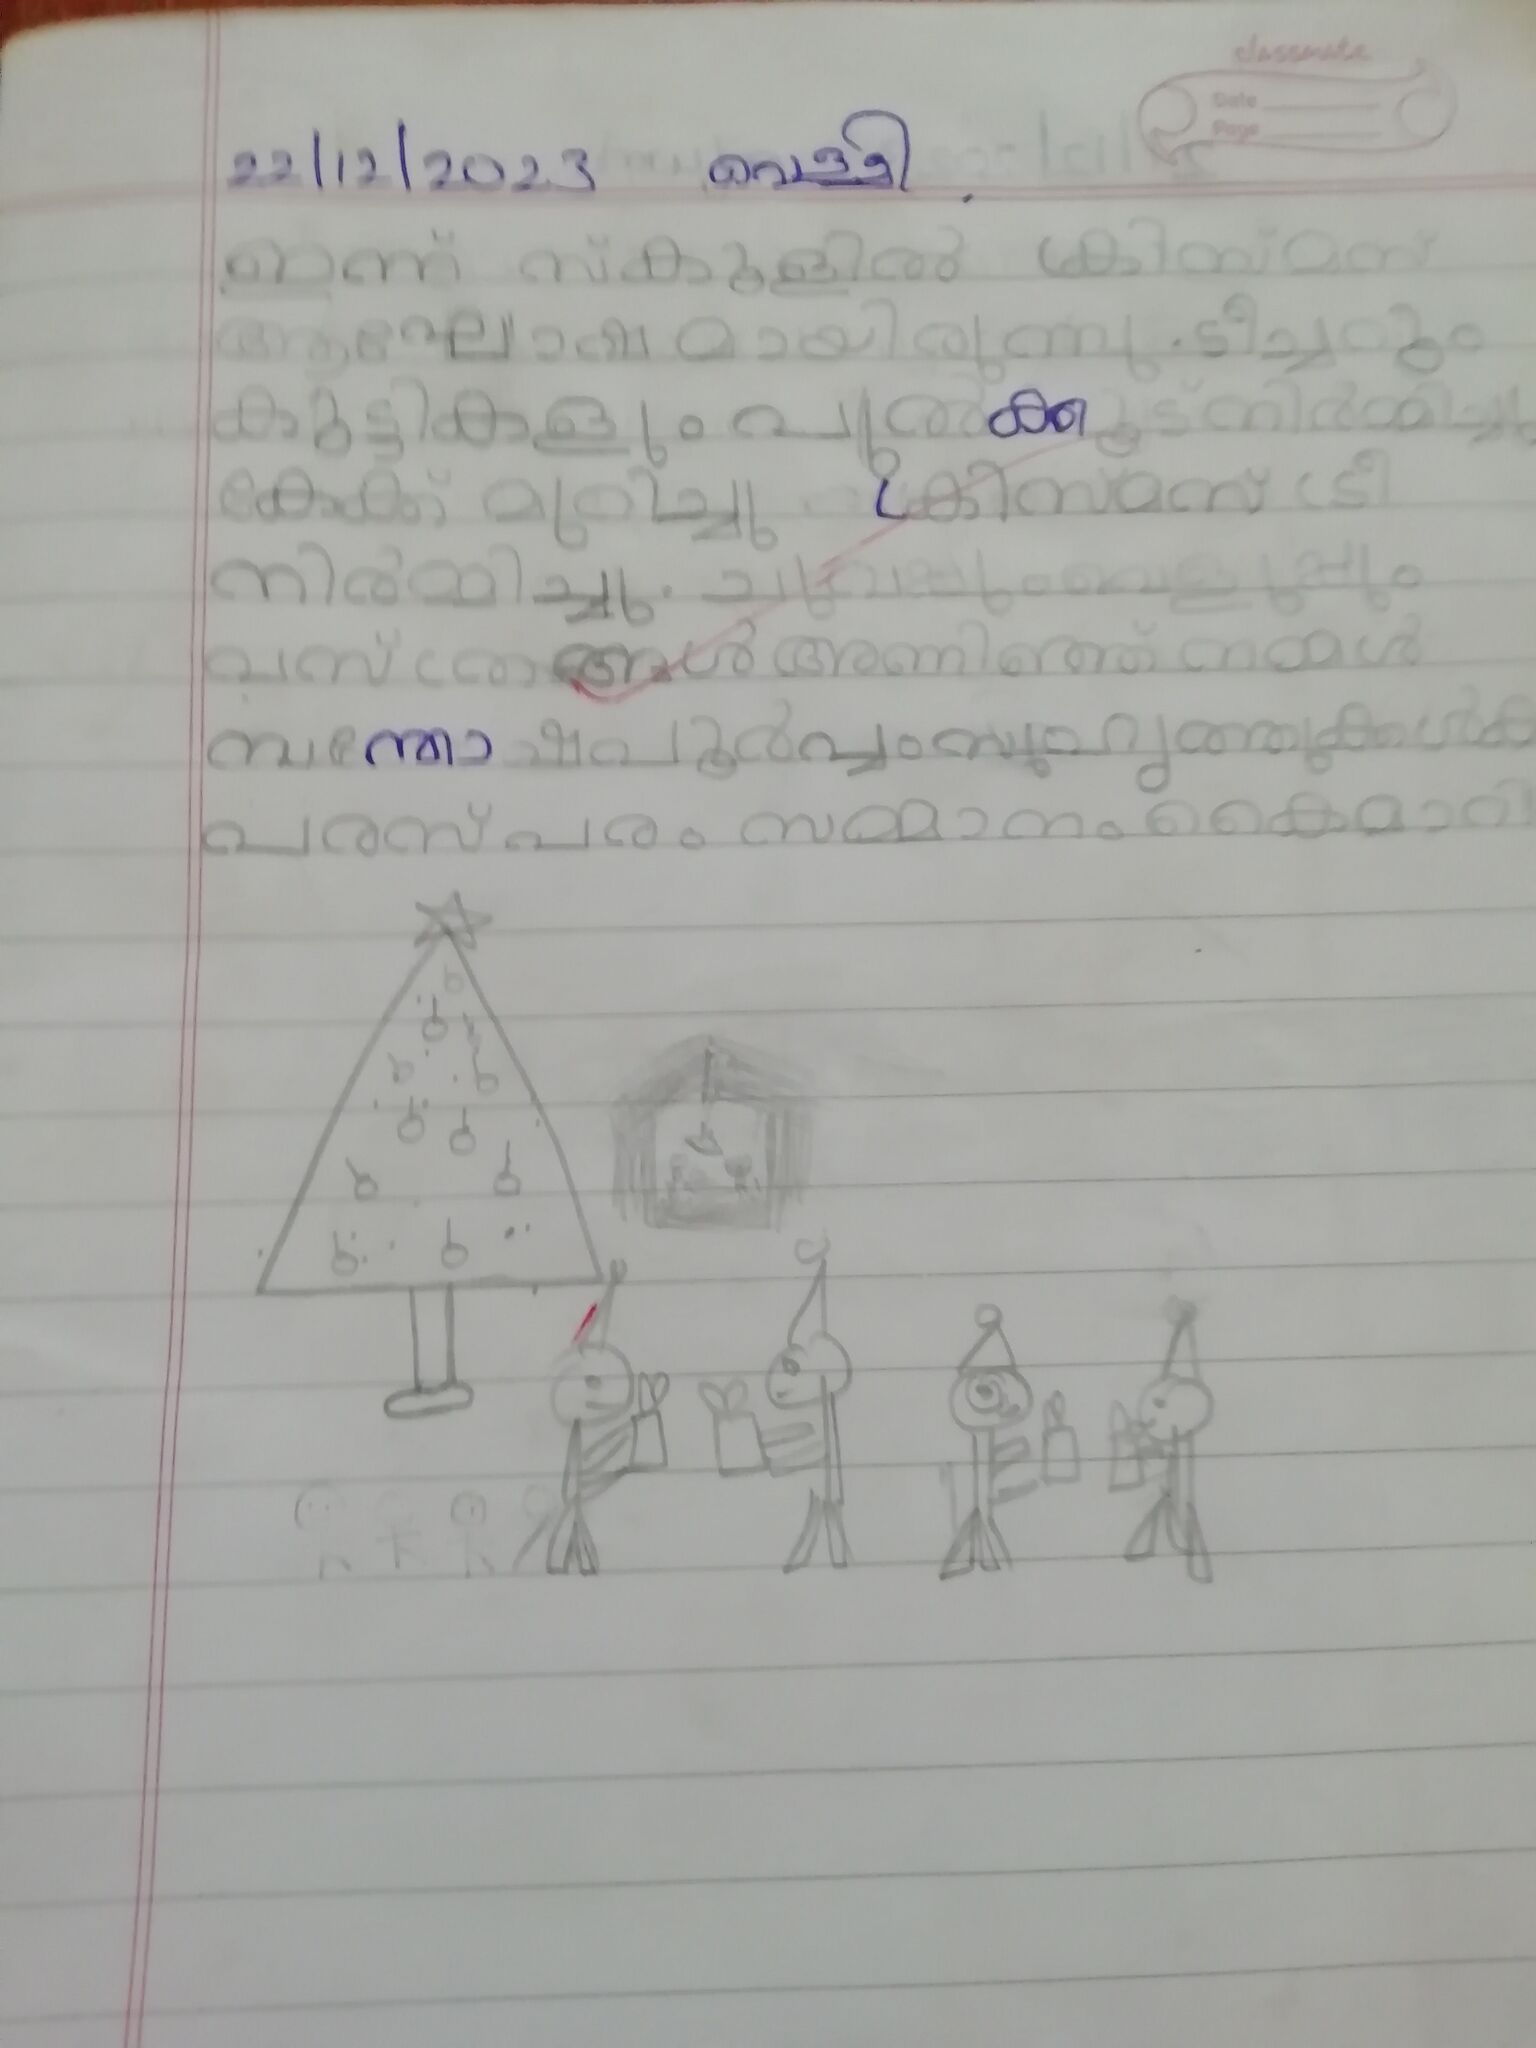 classmate
Date
Page
22/12/2023 വെള്ളി
ഇന്ന് സ്കൂളിൽ ക്രിസ്മസ്
ആഘോഷമായിരുന്നു. ടീച്ചറും
കുട്ടികളും പുൽക്കൂട് നിർമ്മിച്ചു
കേക്ക് മുറിച്ചു. ക്രിസ്മസ് ട്രീ
നിർമ്മിച്ചു. ചുവപ്പും വെളുപ്പും
വസ്ത്രങ്ങൾ അണിഞ്ഞ് നമ്മൾ
സന്തോഷപൂർവ്വം സുഹൃത്തുക്കൾക്ക്
പരസ്പരം സമ്മാനം കൈമാറി